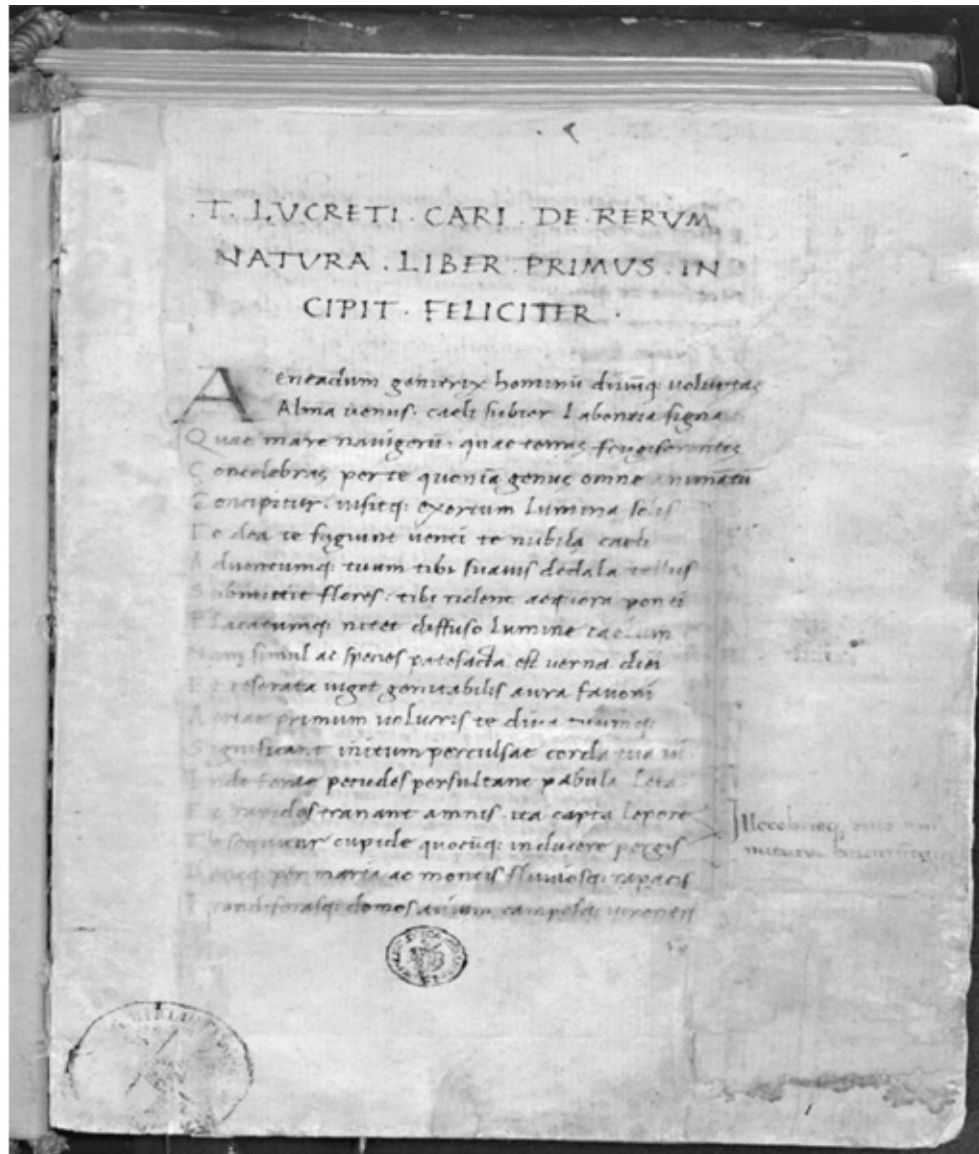 .T. LUCRETI . CARI . DE RERVM
NATURA . LIBER . PRIMUS . IN
CIPIT . FELICITER .
Aeneadum genitrix hominū diuūq; uoluptas
Alma uenus. caeli subter Labentia signa
Quae mare nauigerū. quae terras frugiferentes
Concelebras per te quoniā genus omne animātū
Concipitur. uisitq; exortum Lumina solis
Te dea te fugiunt uenti te nubila caeli
Aduentumq; tuum tibi suauis dedala tellus
Submittit flores. tibi rident aequora ponti
Placatumq; nitet diffuso Lumine caelum
Nam simul ac species patefacta est uerna diei
Et reserata uiget genitabilis aura fauoni
Aeriae primum uolucris te diua tuumq;
Significant initum perculsae corda tua ui
Inde ferae pecudes persultant pabula Leta
Et rapidos tranant amnis. ita capta Lepore
Te sequitur cupide quocūq; inducere pergis
Illecebrisq;
Deniq; per maria ac montis fluuiosq; rapacis
Frondiferasq; domos auium camposq; uirentis